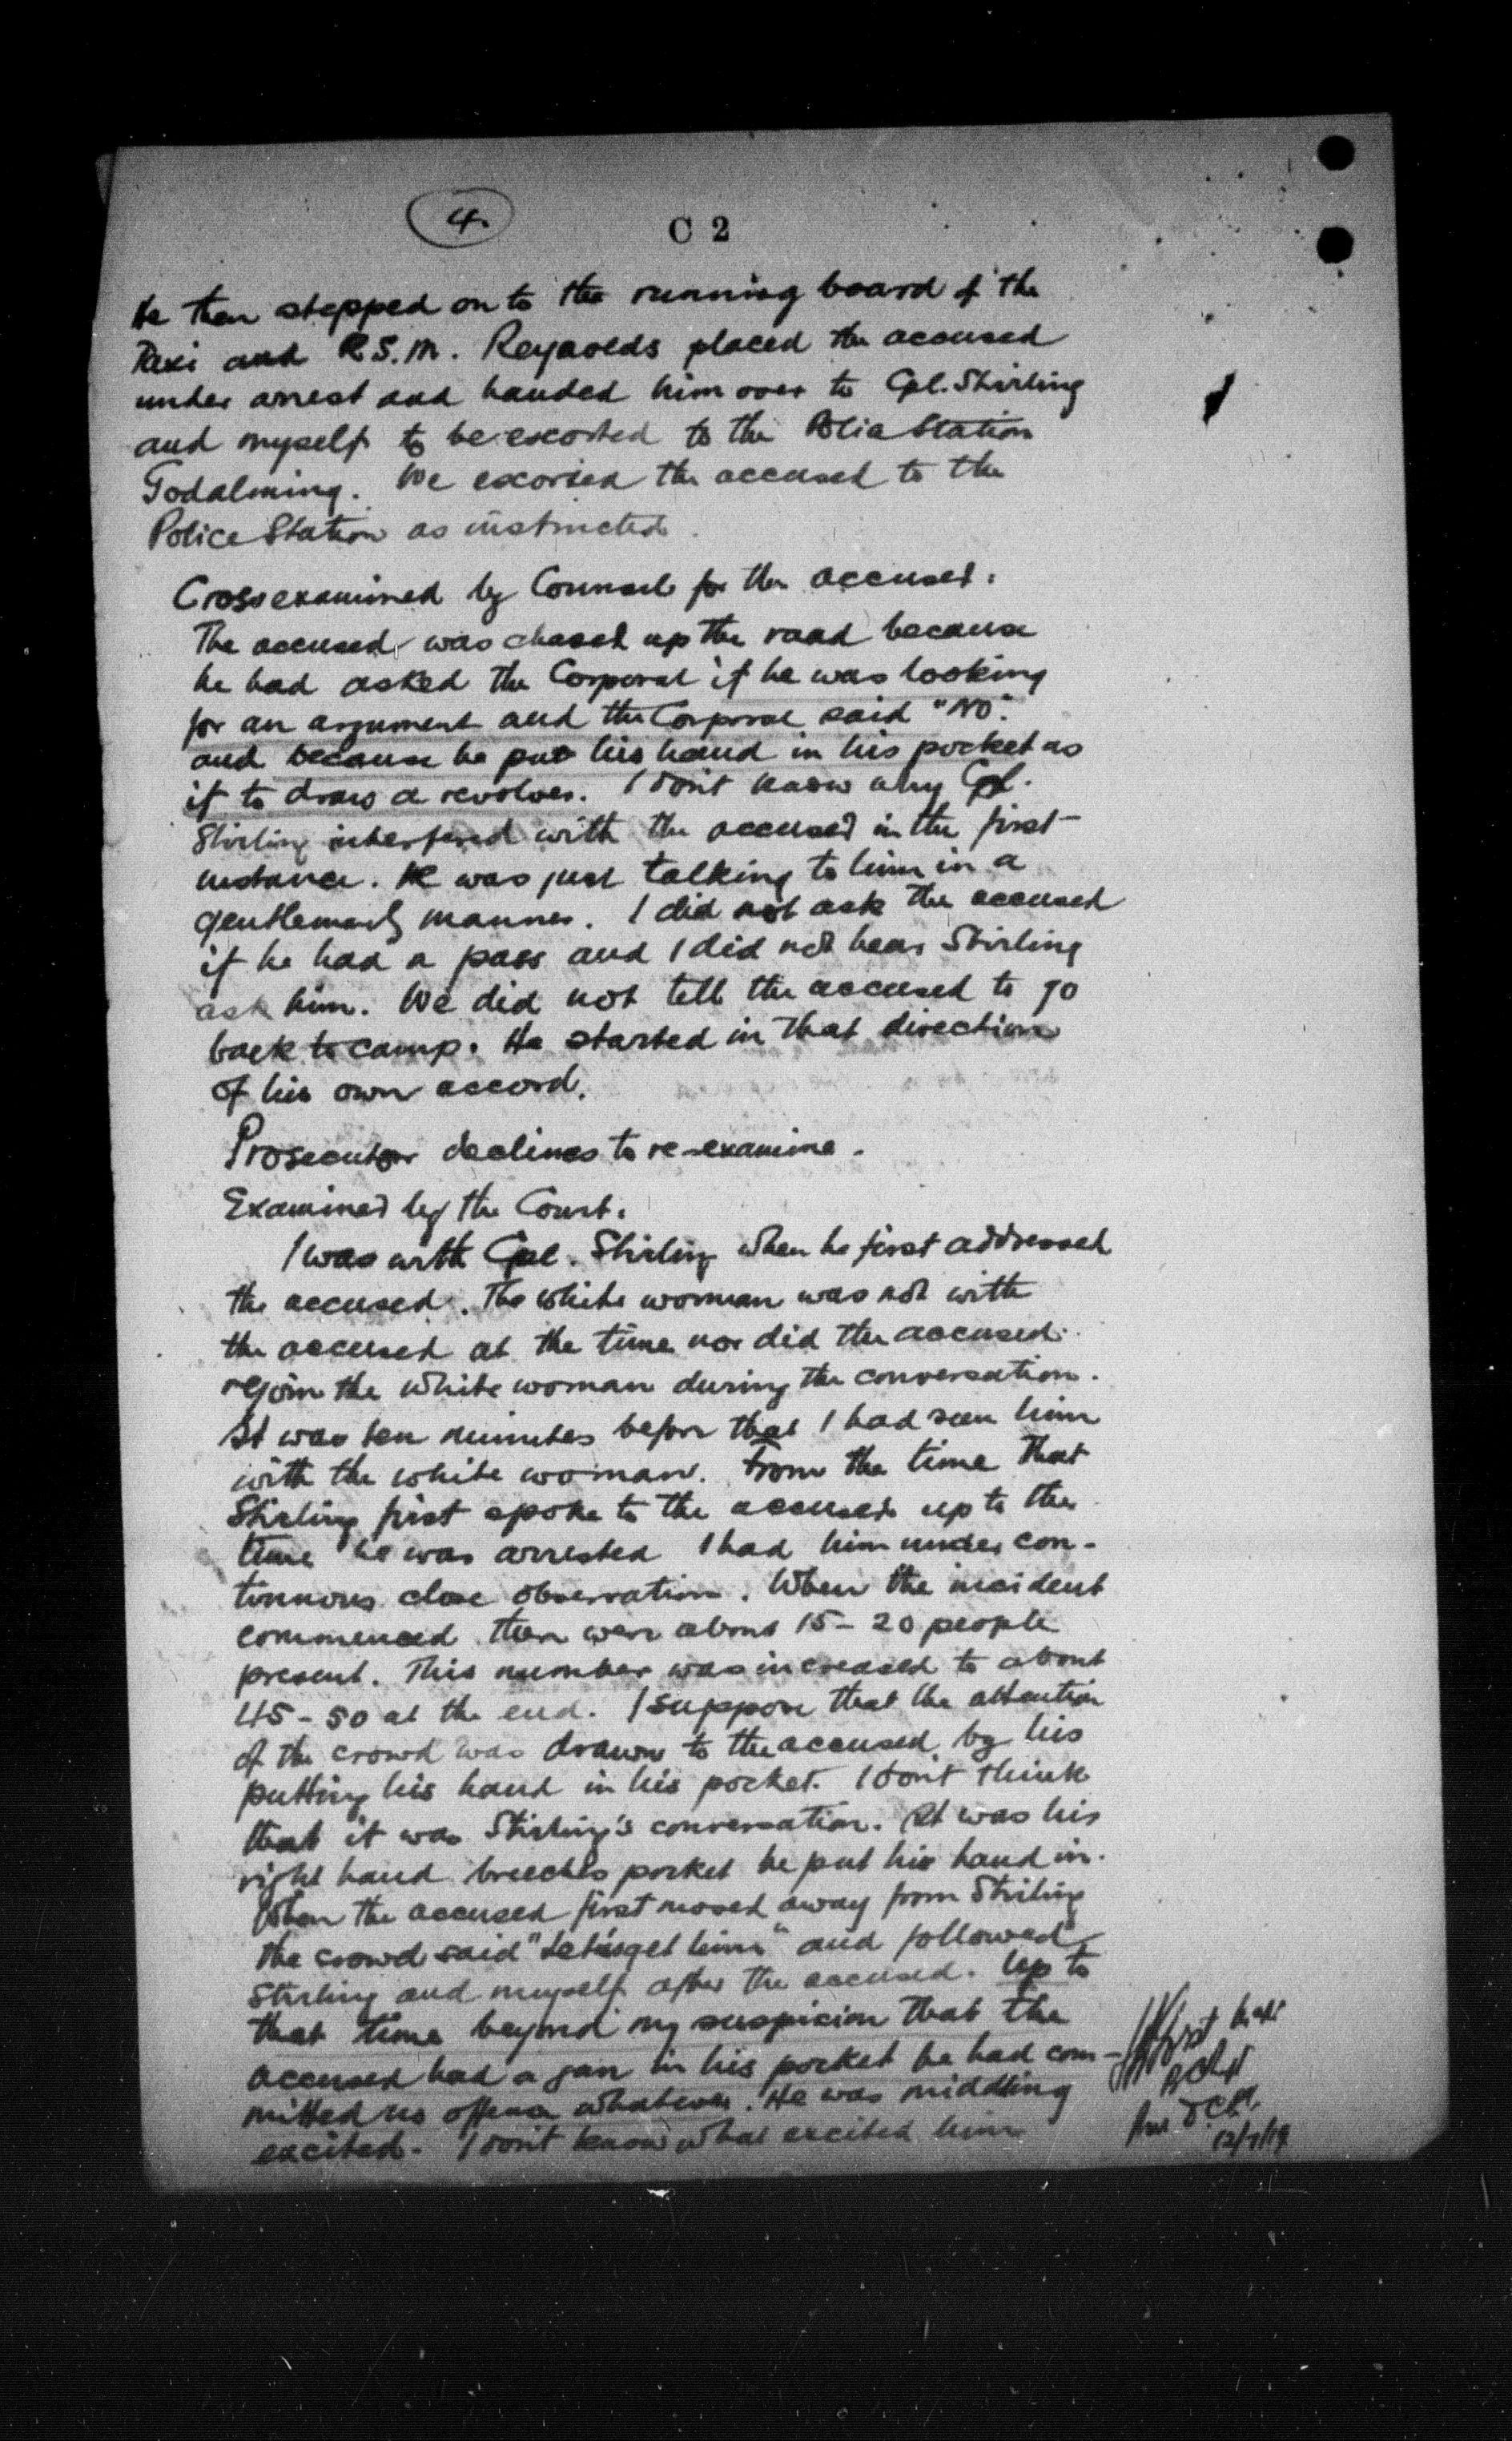 4.
C 2
He then stepped on to the running board of the
Taxi and R.S.M. Reynolds placed the accused
under arrest and handed him over to Cpl. Stirling
and myself to be escorted to the Police Station
Godalming. We escorted the accused to the
Police Station as instructed.
Cross examined by Counsel for the accused.
The accused was chased up the road because
he had asked the Corporal if he was looking
for an argument and the Corporal said "NO".
and because he put his hand in his pocket as
if to draw a revolver. I don't know why Cpl.
Stirling interfered with the accused in the first
instance. He was just talking to him in a
gentlemanly manner. I did not ask the accused
if he had a pass and I did not hear Stirling
ask him. We did not tell the accused to go
back to camp. He started in that direction
of his own accord.
Prosecutor declines to re-examine.
Examined by the Court.
I was with Cpl. Stirling when he first addressed
the accused. The white woman was not with
the accused at the time nor did the accused
rejoin the white woman during the conversation.
It was ten minutes before that I had seen him
with the white woman. From the time that
Stirling first spoke to the accused up to the
time he was arrested I had him under con-
tinuous close observation. When the incident
commenced there were about 15 - 20 people
present. This number was increased to about
45 - 50 at the end. I suppose that the attention
of the crowd was drawn to the accused by his
putting his hand in his pocket. I don't think
that it was Stirling's conversation. It was his
right hand breeches pocket he put his hand in.
When the accused first moved away from Stirling
the crowd said "Let's get him" and followed
Stirling and myself after the accused. Up to
that time beyond my suspicion that the
accused had a gun in his pocket he had com-
mitted no offence whatever. He was middling
excited. I don't know what excited him
12/7/19